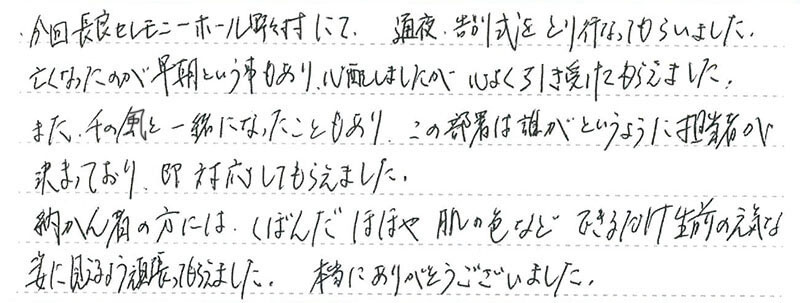 今回長良セレモニーホール野村にて、通夜、告別式をとり行なってもらいました。
亡くなったのが早朝という事もあり、心配しましたが心よく引き受けてもらえました。
また、千の風と一緒になったこともあり、この部署は誰がというように担当者が
決まっており、即対応してもらえました。
納かん者の方には、くぼんだほほや肌の色などできるだけ生前の元気な
姿に見えるよう頑張ってもらえました。本当にありがとうございました。